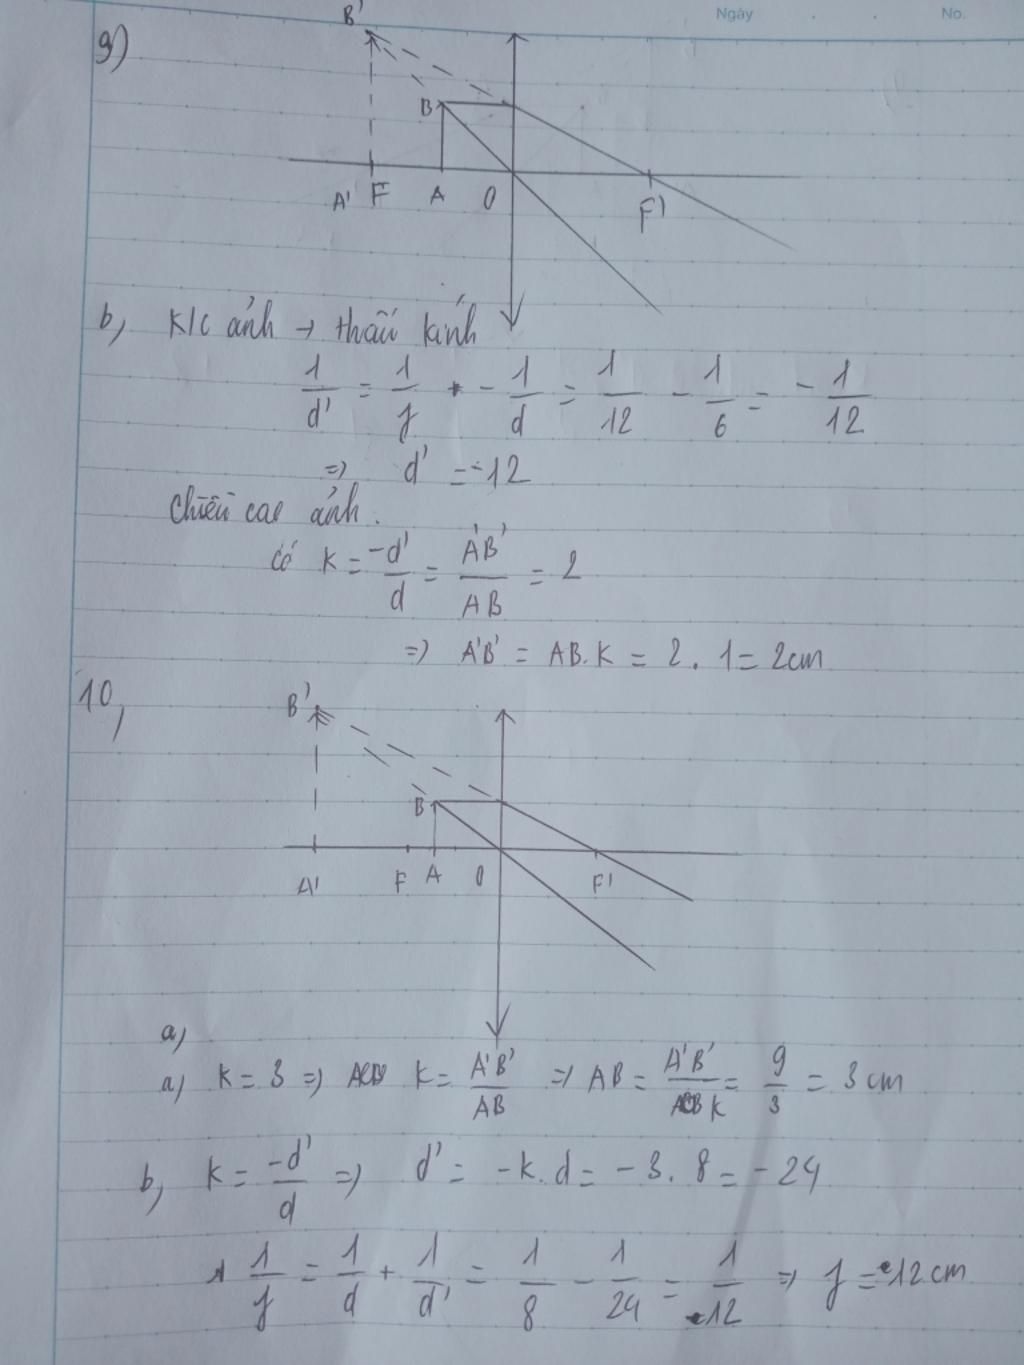 Ngày . . No.
9)
B'
B
A' F A O F'
b, K/C ảnh → thấu kính
1/d' = 1/f - 1/d = 1/12 - 1/6 = - 1/12
=> d' = -12
Chiều cao ảnh.
có K = -d'/d = A'B'/AB = 2
=> A'B' = AB.K = 2 . 1 = 2cm
10,
B'
B
A' F A O F'
a)
a) K = 3 => K = A'B'/AB => AB = A'B'/K = 9/3 = 3 cm
b, K = -d'/d => d' = -K.d = -3. 8 = -24
1/f = 1/d + 1/d' = 1/8 - 1/24 = 1/12 => f = 12 cm